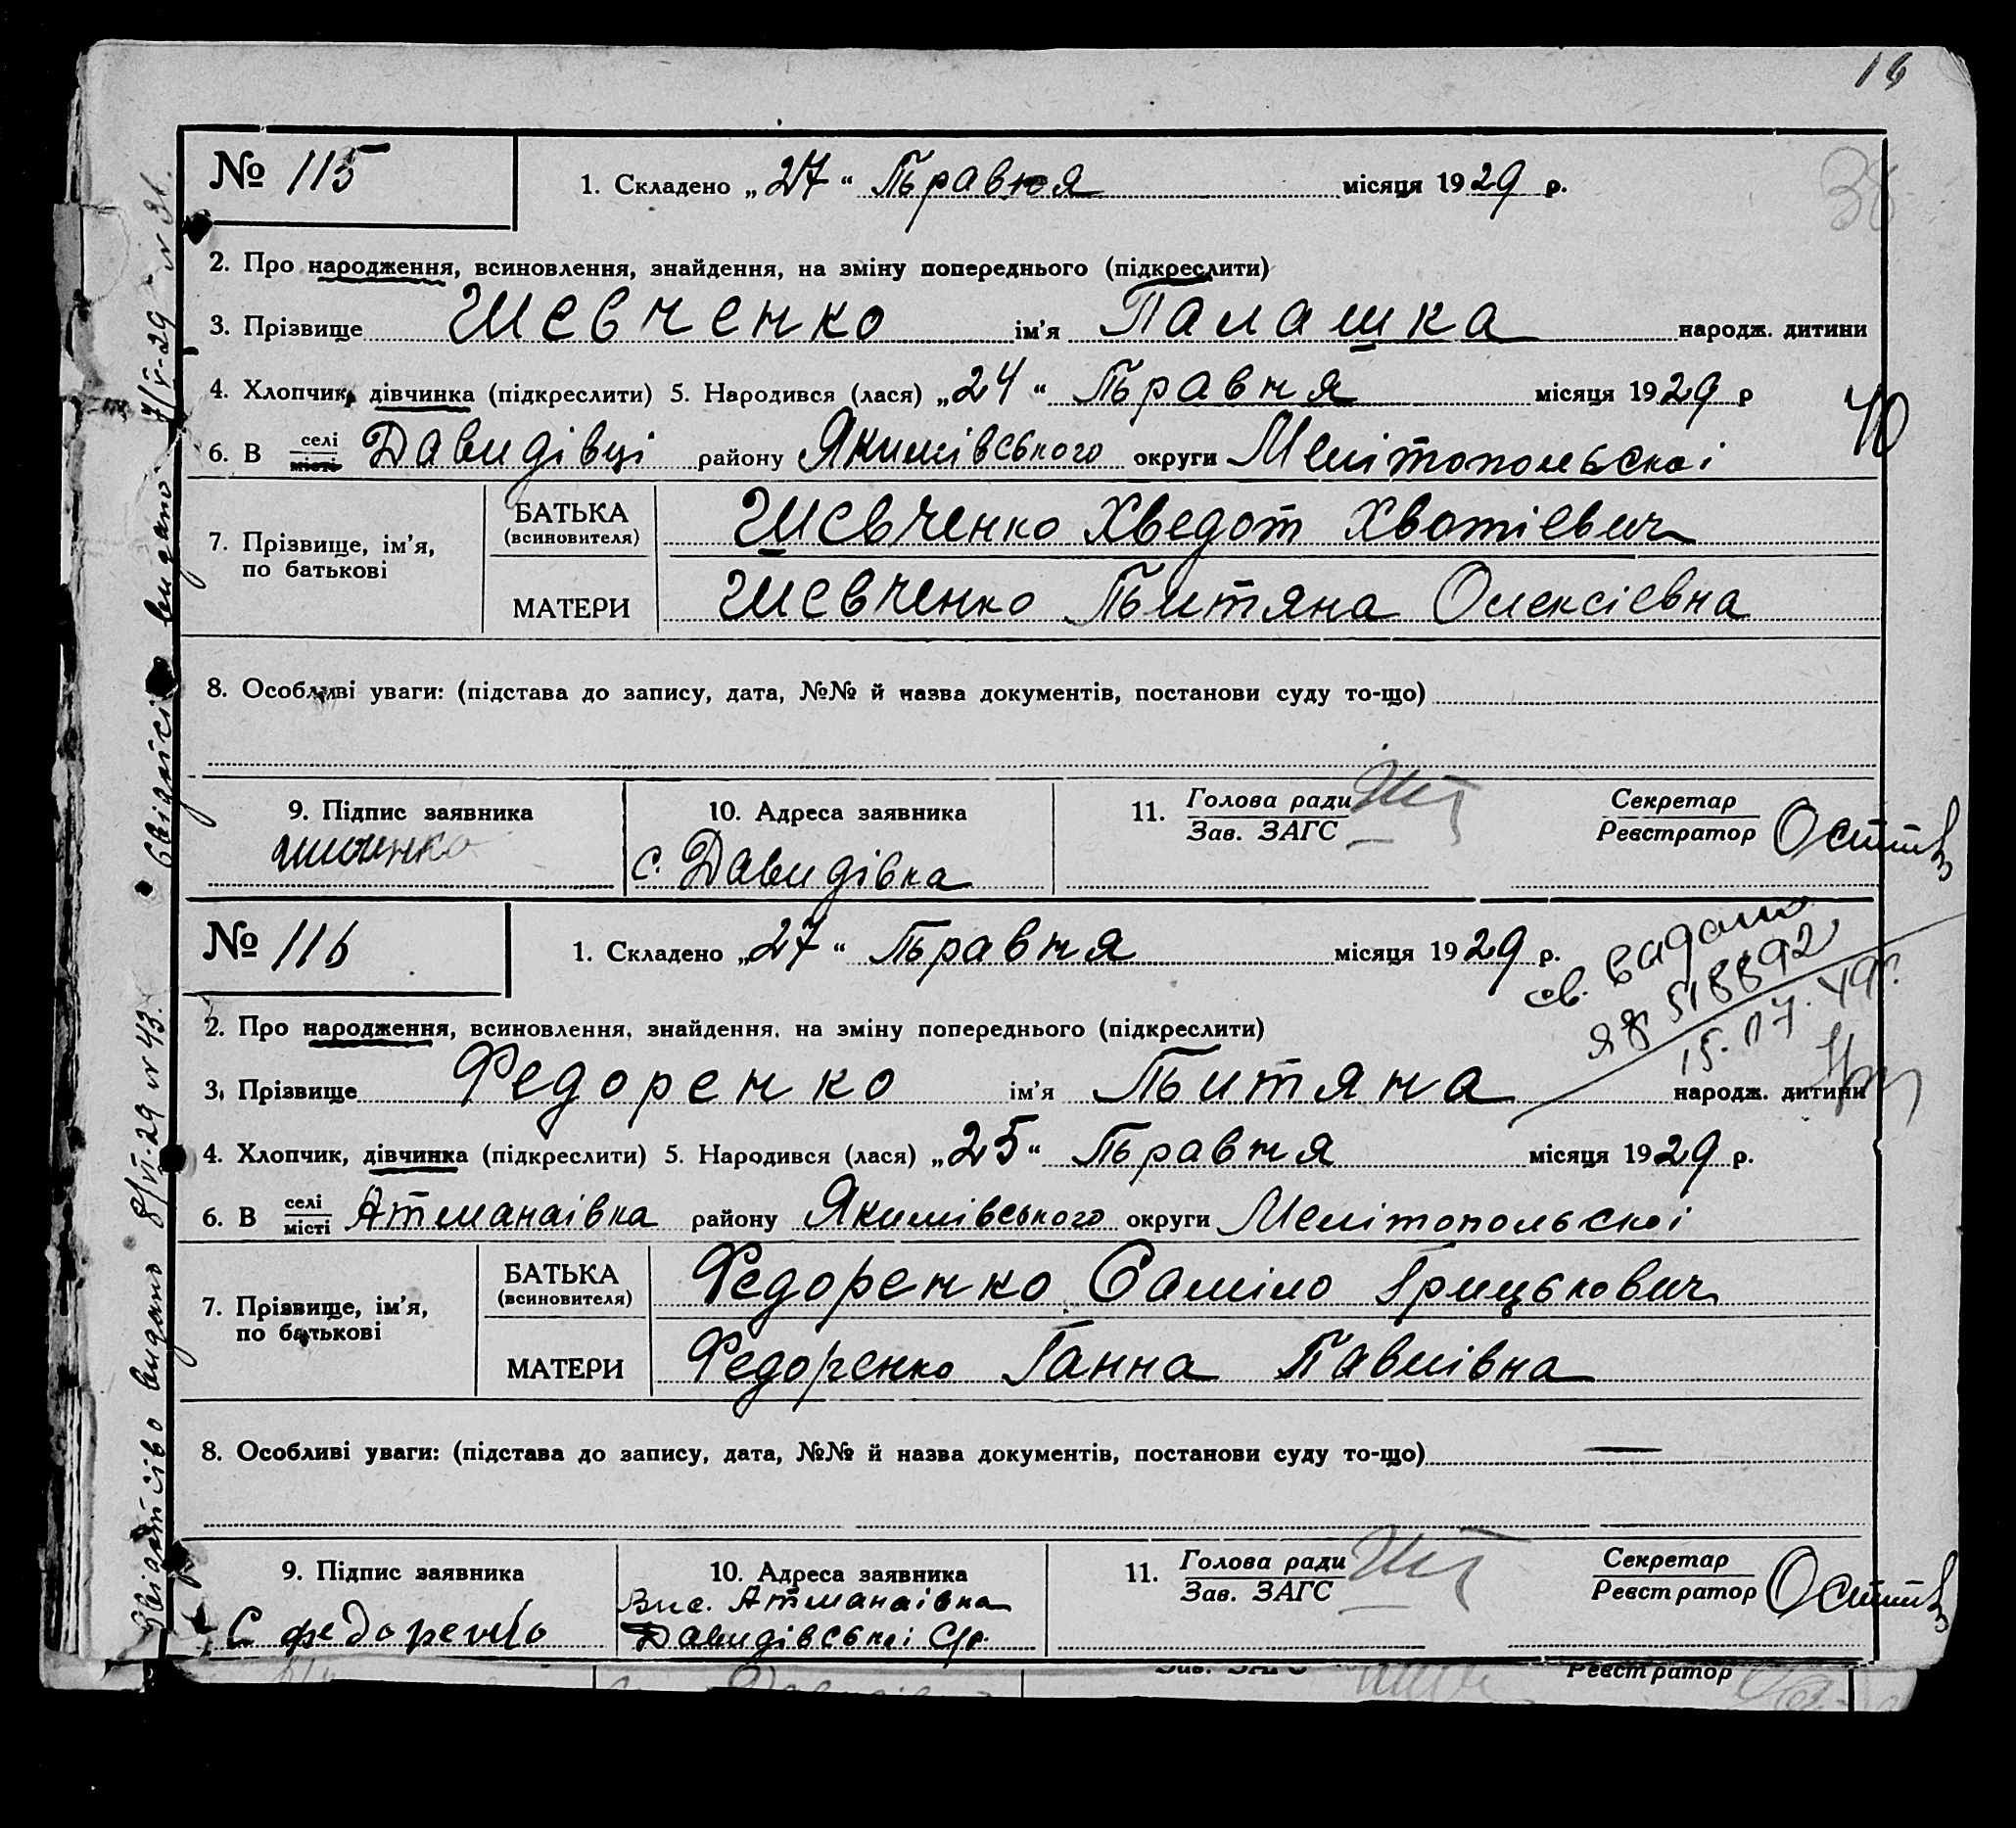 16
№ 115
1. Складено „27“ Травня місяця 1929 р.
38
2. Про народження, всиновлення, знайдення, на зміну попереднього (підкреслити)
3. Прізвище Шевченко ім’я Палашка народж. дитини
4. Хлопчик, дівчинка (підкреслити) 5. Народився (лася) „24“ Травня місяця 1929 р
40
6. В селі місті Давидівці району Якимівського округи Мелітопольскої
7. Прізвище, ім’я, по батькові
БАТЬКА (всиновителя) Шевченко Хведот Хвотієвич
МАТЕРИ Шевченко Титяна Олексієвна
8. Особливі уваги: (підстава до запису, дата, №№ й назва документів, постанови суду то-що)
9. Підпис заявника
10. Адреса заявника
с. Давидівка
11. Голова ради Зав. ЗАГС
Секретар Реєстратор
Свідоцтво видано 7/V-29 № 31.
№ 116
1. Складено „27“ Травня місяця 1929 р.
св. видано
ЯЯ 518892
15.07.49г
2. Про народження, всиновлення, знайдення, на зміну попереднього (підкреслити)
3. Прізвище Федоренко ім’я Титяна народж. дитини
4. Хлопчик, дівчинка (підкреслити) 5. Народився (лася) „25“ Травня місяця 1929 р.
6. В селі місті Атманаівка району Якимівського округи Мелітопольскоі
7. Прізвище, ім’я, по батькові
БАТЬКА (всиновителя) Федоренко Саміло Грицькович
МАТЕРИ Федоренко Ганна Павлівна
8. Особливі уваги: (підстава до запису, дата, №№ й назва документів, постанови суду то-що) —
9. Підпис заявника
С федоренко
10. Адреса заявника
Вис. Атманаівка
Давидівськоі С/р.
11. Голова ради Зав. ЗАГС
Секретар Реєстратор
видано 8/VI-29 № 43.
Зав. ЗАГС
Реєстратор